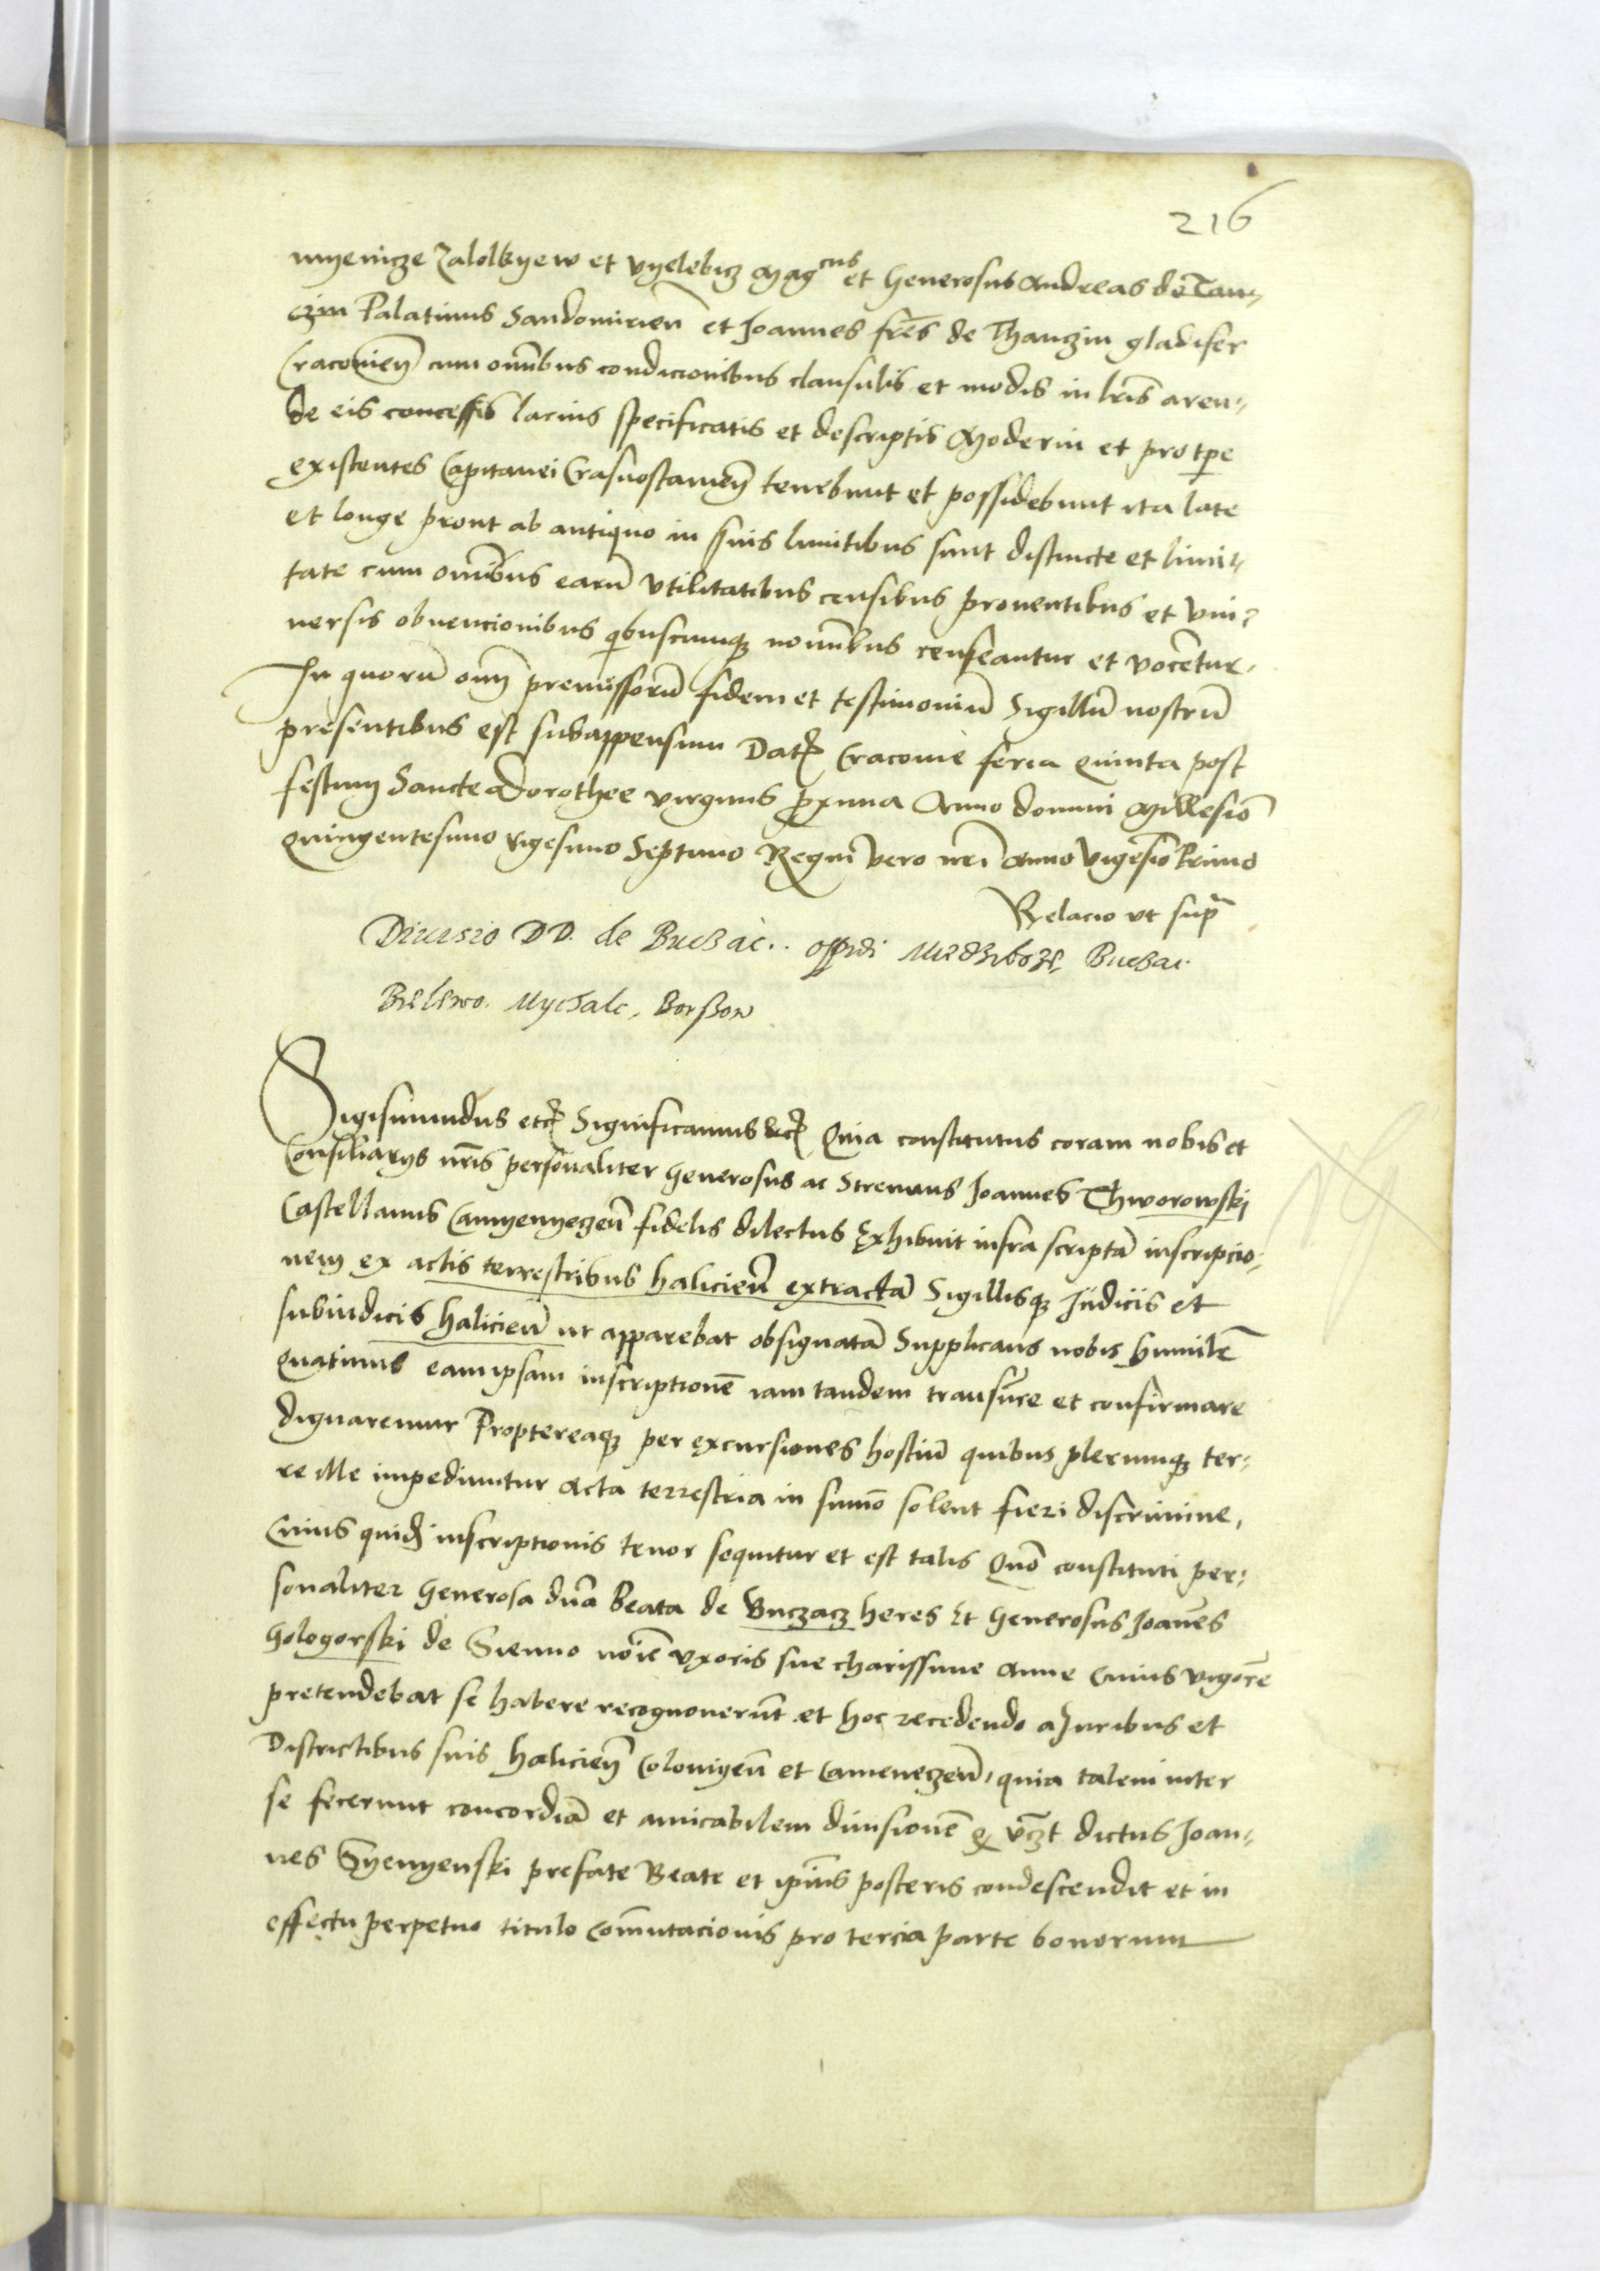 216
myenicze Zalolkyew et Vyelebicz Mag cus et Generosus Andreas de Tan⸗
czin Palatinus Sandomirien̄ et Joannes fr̄es de Thanczin gladifer
Cracovien̄ cum om̄ibus condicionibus clausulis et modis in lr̄is aren⸗
de eis concessis lacius specificatis et descriptis Moderni et pro tp̄e
existentes Capitanei Crasnostavien̄ tenebunt et possidebunt ita late
et longe prout ab antiquo in suis limitibus sunt distincte et limi⸗
tate cum om̄ibus earū utilitatibus censibus proventibus et uni⸗
versis obvencionibus qibuscumq̨ nomī̄bus censeantur et vocētur.
In quorū om̄ premissorū fidem et testimoniū Sigillū nostrū
presentibus est subappensum Dat̨ Cracovie feria Quinta post
festum Sancte Dorothee virginis pxima Anno domini Millesiō
Quingentesimo vigesimo Septimo Regni vero nr̄i Anno Vigesiō Primo
Relacio ut supᵃ
Divisio DD. de Buczac.. oppidi Miedziboze, Buczac
Bielewo. Mychalc, Borssow
Sigismundus etc̨ Significamus &c̨ Quia constitutus coram nobis et
Consiliarys nr̄is personaliter Generosus ac Strenuus Joannes Thworowskj
Castellanus Camyenyeczen̄ fidelis dilectus Exhibuit infra scriptā inscripcio⸗
nem ex actis terrestribus halicien̄ extractā Sigillisq̨ Judicis et
subiudicis halicien̄ ut apparebat obsignatā Supplicans nobis humilr̄
Quatinus eam ipsam inscriptionē iam tandem transūre et confirmare
dignaremur Proptereaq̨ per excursiones hostiū quibus plerumq̨ ter⸗
re ille impediuntur Acta terrestria in sumō solent fieri discrimine,
Cuius quid̨ inscriptionis tenor sequitur et est talis Quō constituti per⸗
sonaliter Generosa dn̄a Beata de Buczacz heres Et Generosus Joān̄es
Gologorski de Sienno noīe uxoris sue charissime Anne Cuius vigorē
pretendebat se habere recognoverūt et hoc recedendo a Juribus et
Districtibus suis halicien̄ Colomyen̄ et Cameneczen̄, quia talem inter
se fecerunt concordiā et amicabilem divisionē Q vīczt dictus Joan⸗
nes Syenyenski prefate Beate et ip̄ius posteris condescendit et in
effectu perpetuo titulo com̄utacionis pro tercia parte bonorum